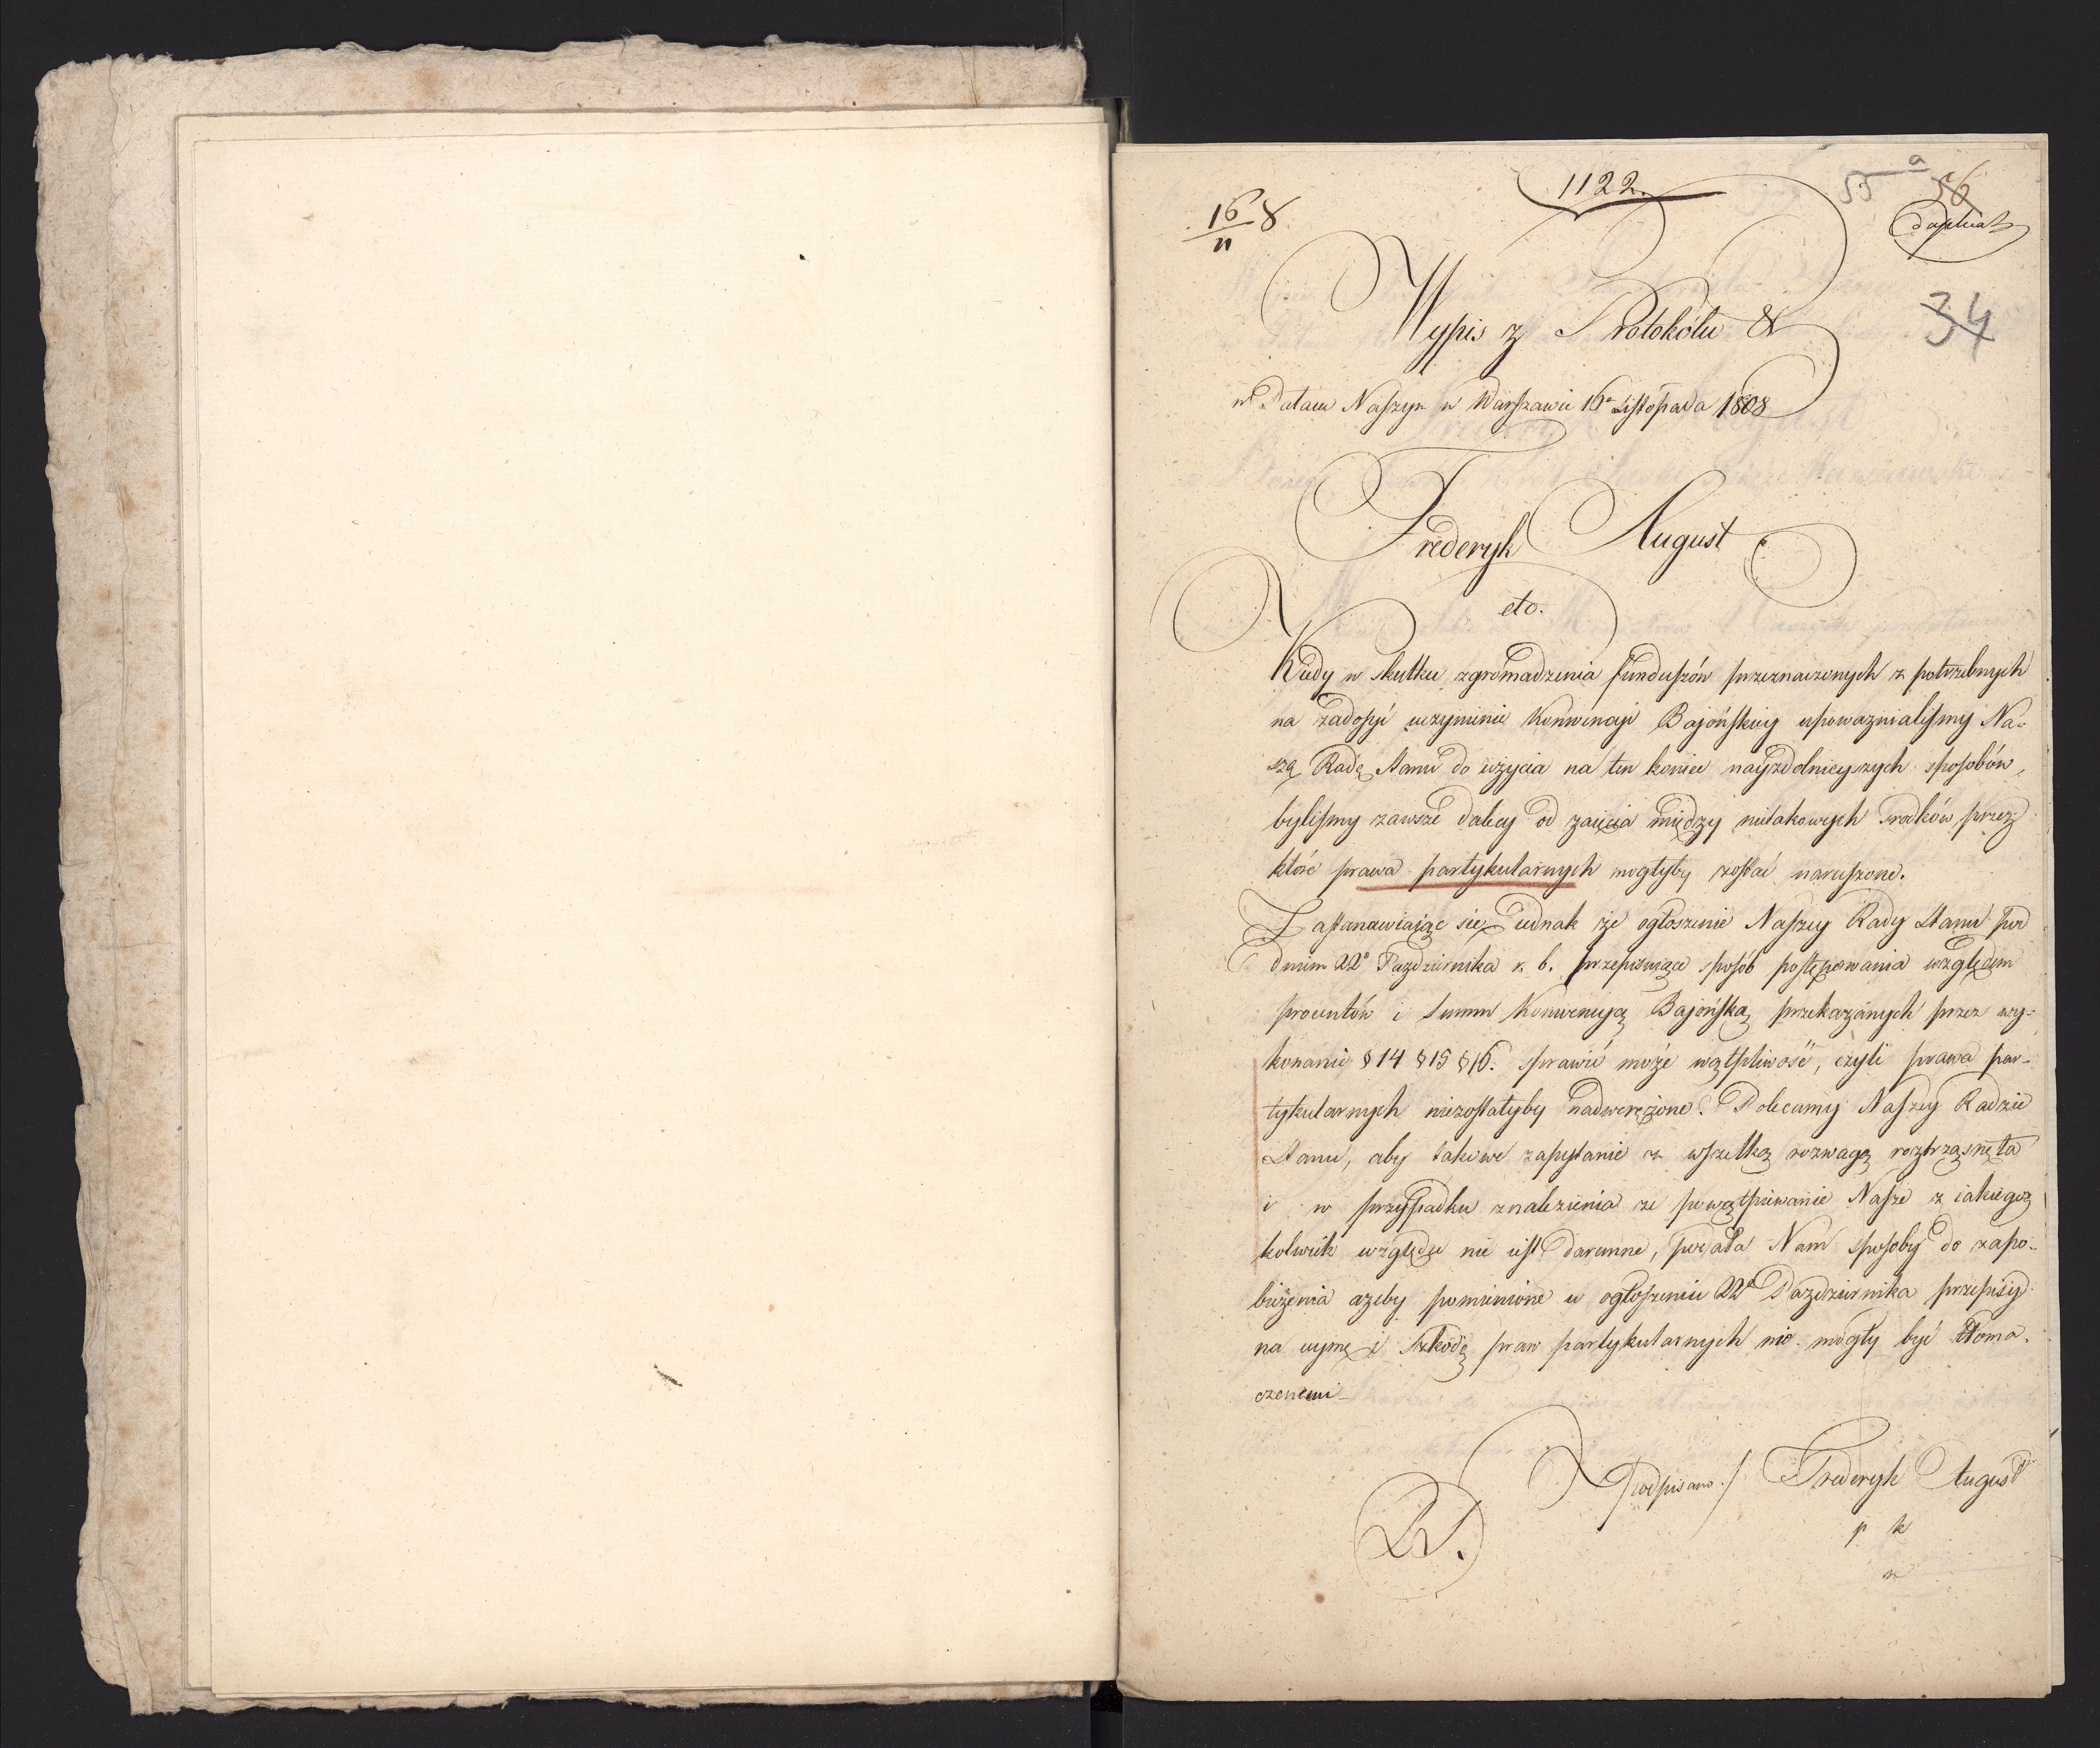 1122.
55 a
56
16/11 8
Duplicat
34
Wypis z Protokółu &
w Pałacu Naszym w Warszawie 16º Listopada 1808
Frederyk August
etc.
Kiedy w skutku zgromadzenia funduszów przeznaczonych z potrzebnych
na zadosyć uczynienie Konwencyi Bajońskiey upoważnialismy Na-
szą Radę Stanu do użycia na ten koniec nayzdolnieyszych sposobów,
bylismy zawsze dalecy od zaięcia między nietakowych srodków przez
które prawa partykularnych mogłyby zostać naruszone.
Zastanawiaiąc się iednak że ogłoszenie Naszey Rady Stanu pod
dniem 22º Pazdziernika r. b. przepisuiące sposób postępowania względem
procentów i Summ Konwencyą Bajońską przekazanych przez wy-
konanie § 14 § 15 § 16. sprawić może wątpliwość, czyli prawa par-
tykularnych niezostałyby nadwerężone. Polecamy Naszey Radzie
Stanu, aby takowe zapytanie z wszelką rozwagą roztrząsnęła
i w przypadku znalezienia że powątpiewanie Nasze z iakiegoż
kolwiek względu nie iest daremne, podała Nam sposoby do zapo-
bieżenia ażeby pomienione w ogłoszeniu 22º Pazdziernika przepisy
na uymę i szkodę praw partykularnych nie mogły być tłoma-
czonemi_
Podpisano / Frederyk August
p k